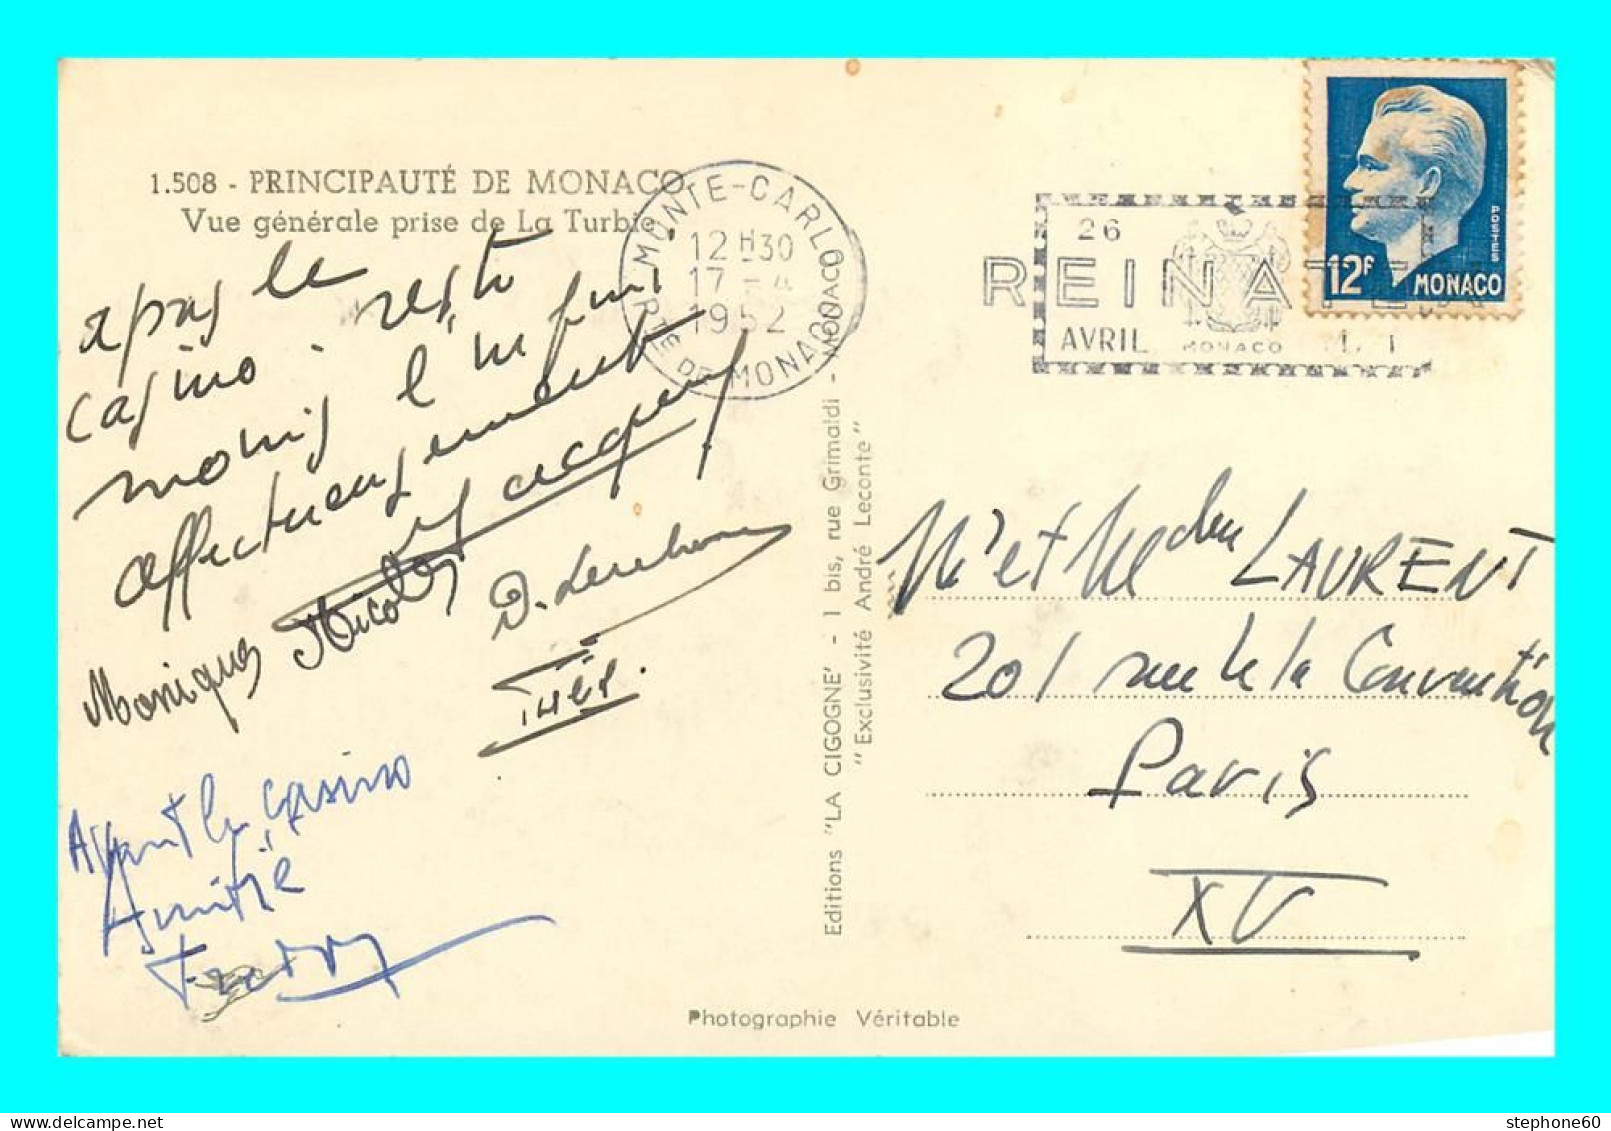 1.508 - PRINCIPAUTÉ DE MONACO
Vue générale prise de La Turbie
après le
casino . reste
moins l'infini
affectueusement
Jacques
Monique Nicole
Avant le casino
Amitié
MONTE-CARLO
12H30
17 - 4
1952
PTE DE MONACO
Editions "LA CIGOGNE" - 1 bis, rue Grimaldi - MONACO
"Exclusivité André Leconte"
Photographie Véritable
26
REINATEX
AVRIL MONACO
POSTES
12F MONACO
M. et Me LAURENT
201 rue de la Convention
Paris
XV
stephone60